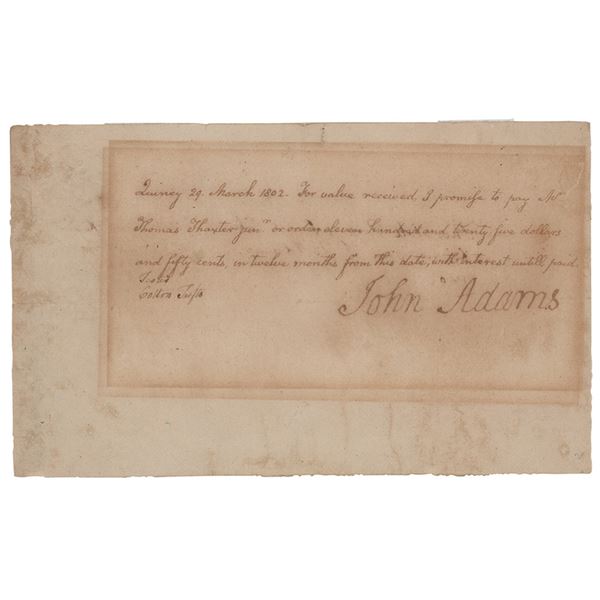 Quincy 29. March 1802. For value received, I promise to pay Mr
Thomas Thaxter junr or order eleven hundred and twenty five dollars
and fifty cents, in twelve months from this date, with interest untill paid.
Test
Cotton Tufts
John Adams